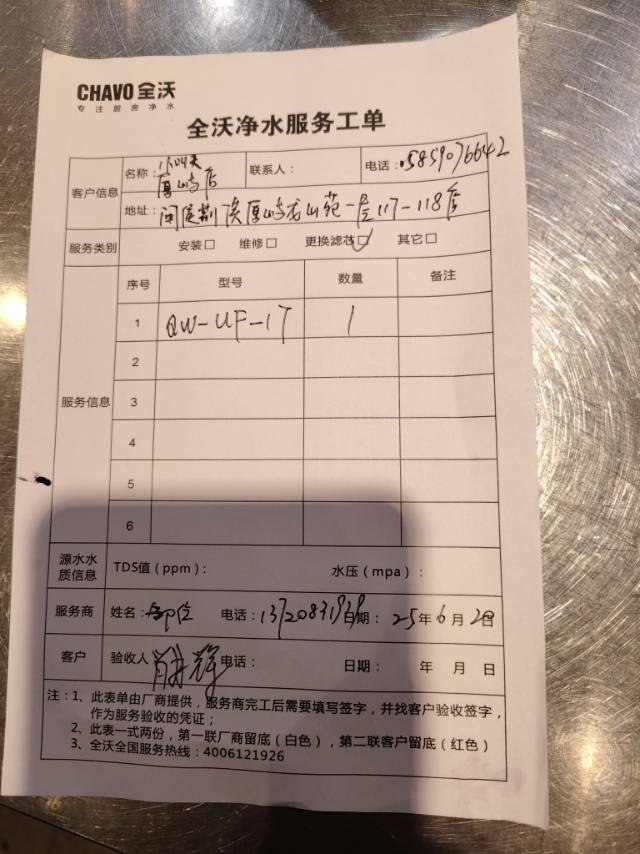 CHAVO 全沃
专注厨房净水
全沃净水服务工单
客户信息
名称: 厚屿店
联系人:
电话: 15859076642
地址: 厚屿龙山苑一层117-118店
服务类别 安装□ 维修□ 更换滤芯□✓ 其它□
服务信息
序号 型号 数量 备注
1 QW-UF-1T 1
2
3
4
5
6
源水水质信息 TDS值(ppm): 水压(mpa):
服务商 姓名: 电话: 日期: 25年6月28日
客户 验收人 电话: 日期: 年 月 日
注:1、此表单由厂商提供,服务商完工后需要填写签字,并找客户验收签字,
作为服务验收的凭证;
2、此表一式两份,第一联厂商留底(白色),第二联客户留底(红色)
3、全沃全国服务热线:4006121926